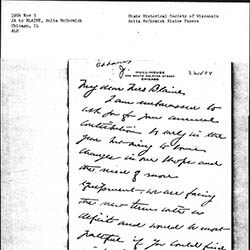 1904 Nov 1
JA to BLAINE, Anita McCormick
Chicago, IL
ALS
State Historical Society of Wisconsin
Anita McCormick Blaine Papers
Addams
J.
HULL-HOUSE
CHICAGO
My dear Mrs Blaine
I am embarrassed to
ask for your annual
contribution so early in the
year but owing to some
changes in our shops and
the need of more
equipment - we are facing
the new term with a
deficit and would be most
grateful if you could find